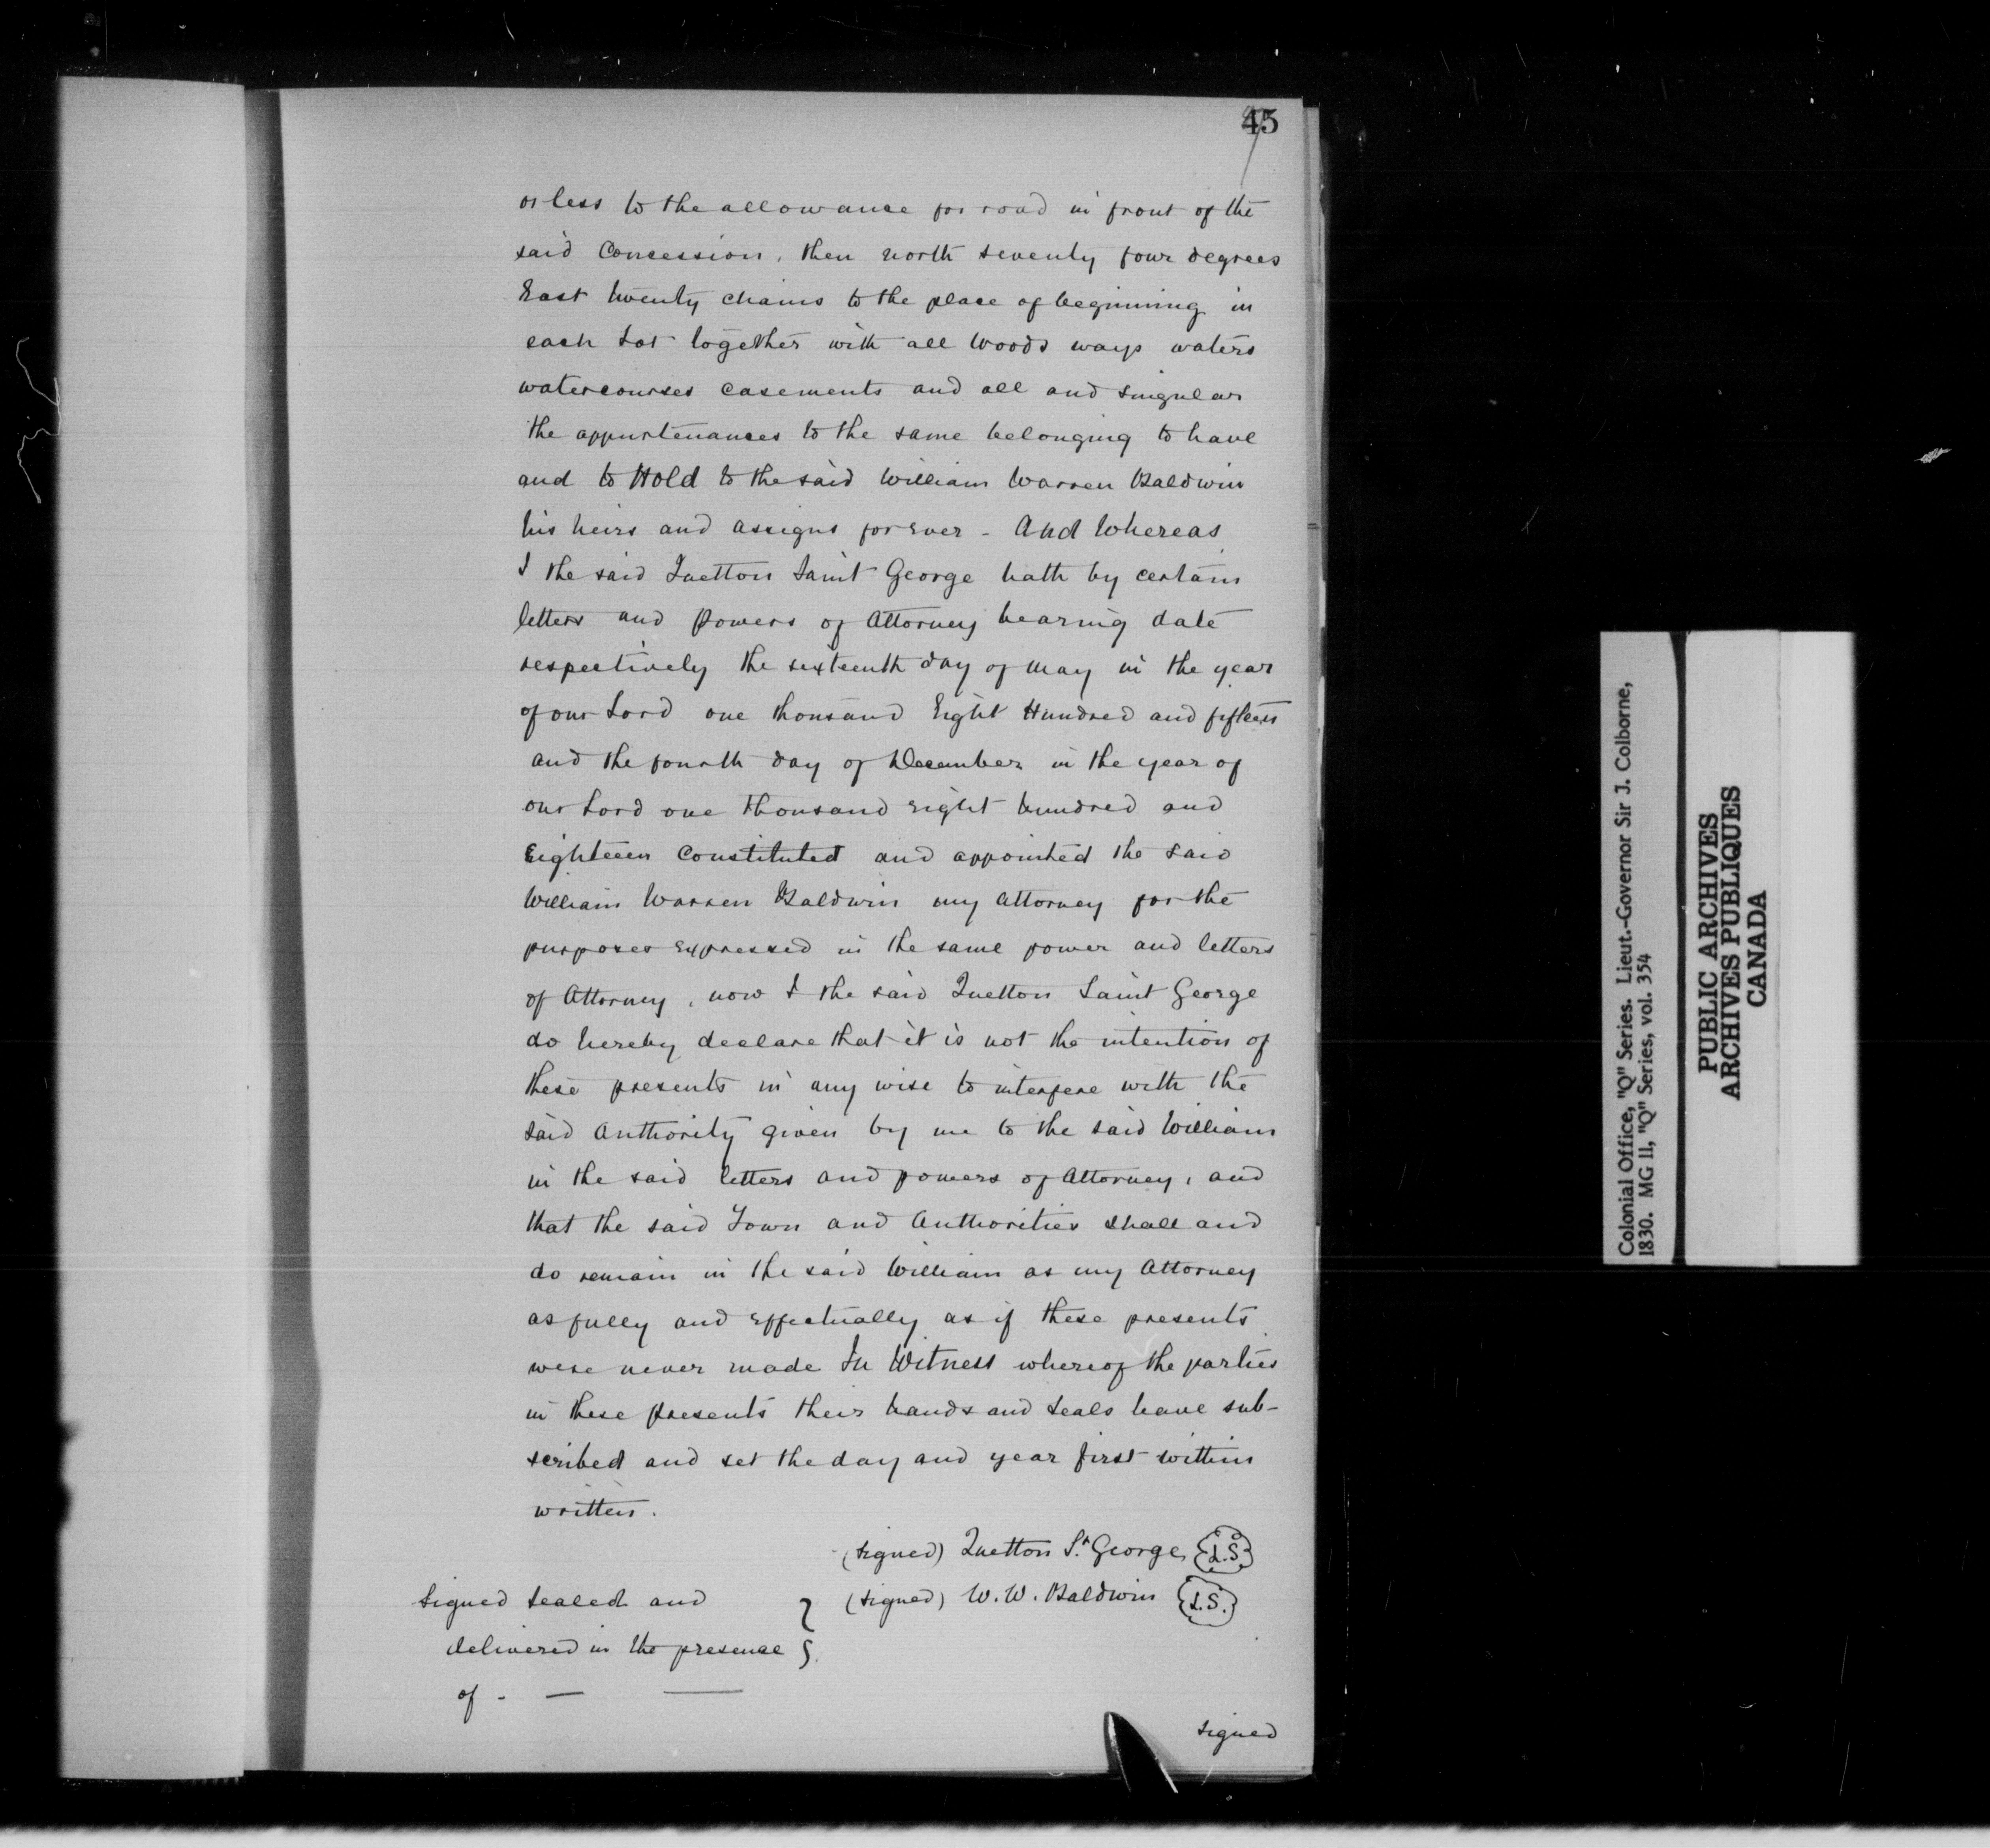 45
or less to the allowance for road in front of the
said Concession, then north seventy four degrees
East twenty chains to the place of beginning in
each Lot together with all Woods ways waters
watercourses easements and all and singular
the appurtenances to the same belonging to have
and to Hold to the said William Warren Baldwin
his heirs and assigns for Ever - And Whereas
I the said Quetton Saint George hath by certain
letters and Powers of Attorney bearing date
respectively the sixteenth day of May in the year
of our Lord one thousand Eight Hundred and fifteen
and the fourth day of December in the year of
our Lord one thousand Eight hundred and
Eighteen Constituted and appointed the said
William Warren Baldwin my Attorney for the
purposes Expressed in the same power and letters
of Attorney, now I the said Quetton Saint George
do hereby declare that it is not the intention of
these presents in any wise to interfere with the
said Authority given by me to the said William
in the said letters and powers of Attorney, and
that the said Town and Authorities shall and
do remain in the said William as my Attorney
as fully and Effectually as if these presents
were never made In Witness whereof the parties
in these Presents their hands and seals have sub-
scribed and set the day and year first within
written.
(signed) Quetton St. George L.S
Signed Sealed and (signed) W. W. Baldwin L.S.
delivered in the presence
of -
signed
Colonial Office, "Q" Series. Lieut.-Governor Sir J. Colborne,
1830. MG 11, "Q" Series, vol. 354
PUBLIC ARCHIVES
ARCHIVES PUBLIQUES
CANADA